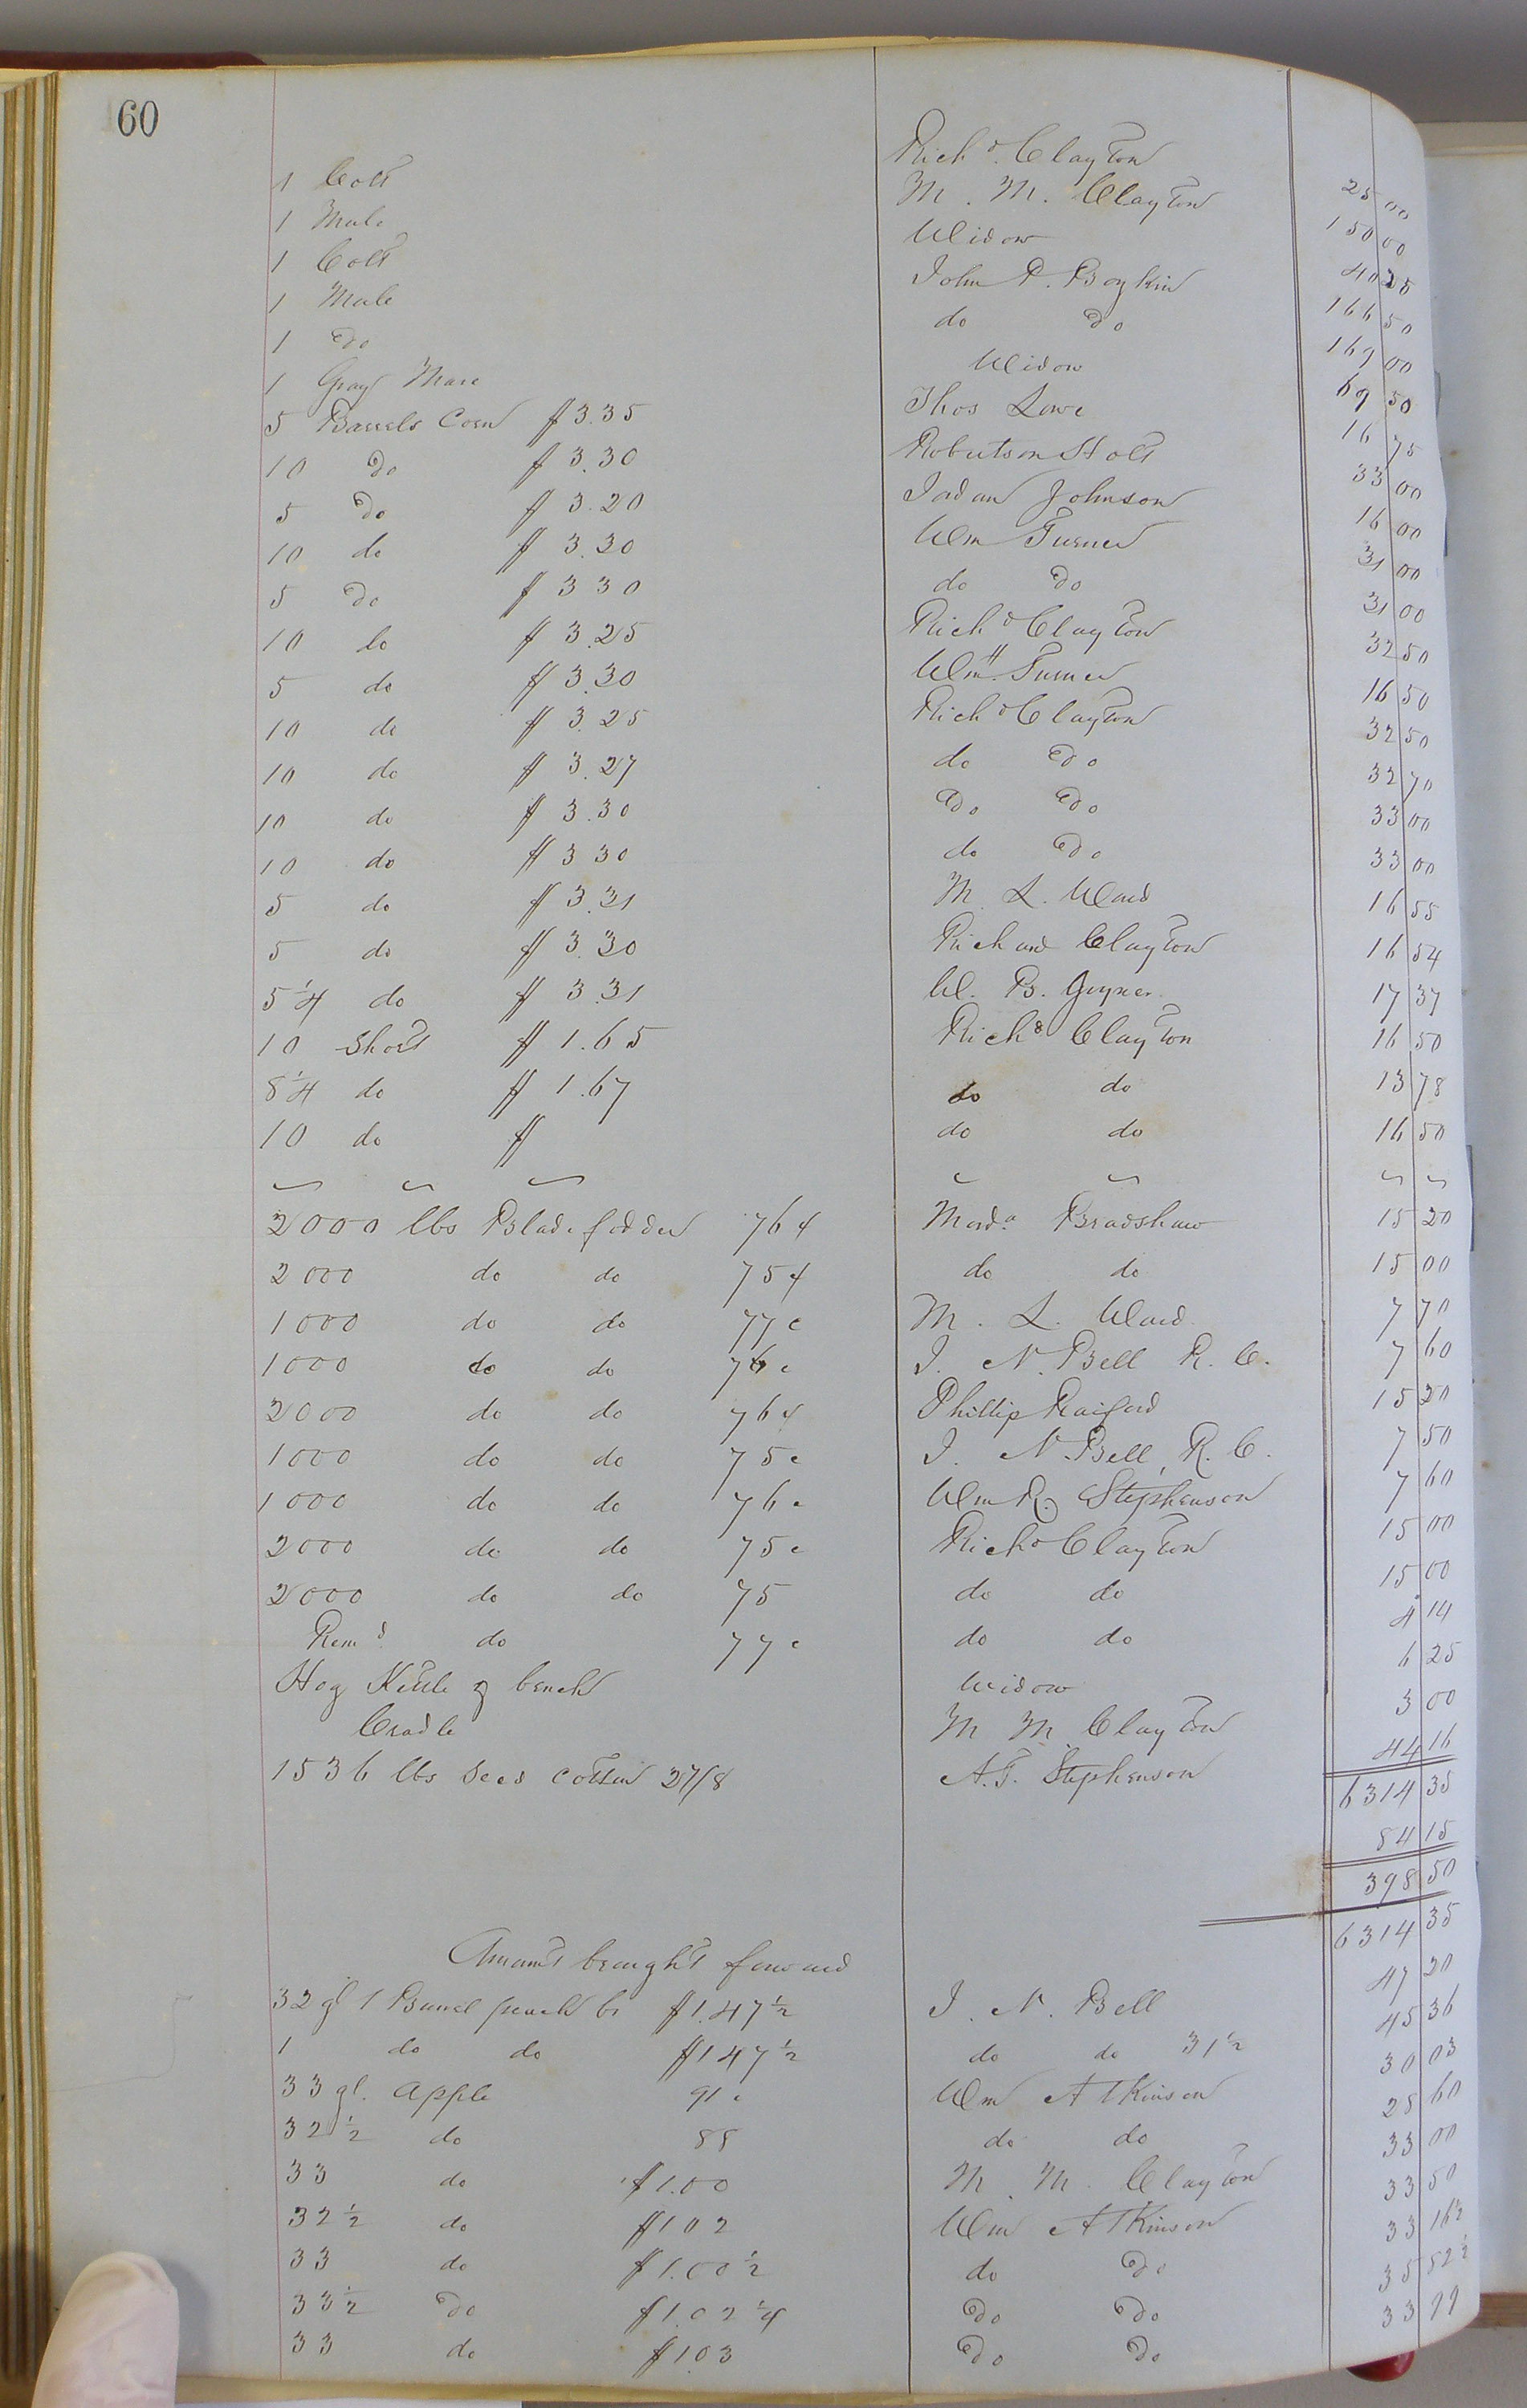 60
1 Colt Rich d. Clayton 25 00
1 Mule M. M. Clayton 150 00
1 Colt Widow 40 25
1 Mule John P. Boykin 166 50
1 Do do Do 169 00
1 Gray Mare Widow 69 50
5 Barrels Corn $3.35 Thos Lowe 16 75
10 Do $3.30 Robertson Holt 33 00
5 Do $3.20 Johnson 16 00
10 do $3.30 Wm Turner 31 00
5 Do $3 30 do Do 31 00
10 do $3.25 Rich d Clayton 32 50
5 do $3.30 Wm H. Turner 16 50
10 do $3.25 Rich d Clayton 32 50
10 do $3.27 do Do 32 70
10 do $3.30 Do Do 33 00
10 do $3 30 do Do 33 00
5 do $3.31 M. L. Ward 16 55
5 do $3.30 Richard Clayton 16 54
5 1/4 do $3.31 W. B. Joyner 17 37
10 Short $1.65 Rich d Clayton 16 50
8 1/4 do $1.67 do do 13 78
10 do $ do do 16 50
2000 lbs Blade fodder 76 ¢ Bradshaw 15 20
2000 do do 75 ¢ do do 15 00
1000 do do 77 c M. L. Ward 7 70
1000 do do 76 c J. N. Bell R. C. 7 60
2000 do do 76 ¢ Phillip Raiford 15 20
1000 do do 75 c J. N. Bell, R. C. 7 50
1000 do do 76 c Wm R. Stephenson 7 60
2000 do do 75 c Rich d Clayton 15 00
2000 do do 75 do do 15 00
Rem d do 77 c do do 4 14
Hog Kettle & bench Widow 6 25
Cradle M M Clayton 3 00
1536 lbs Seed Cotton 2 7/8 A. T. Stephenson 44 16
6314 35
84 15
398 50
6314 35
Amount brought forward
32 gl 1 Barrel peach br $1.47 1/2 J. N. Bell 47 20
1 do do $1 47 1/2 do do 31 1/2 45 36
33 gl. Apple 91 c Wm Atkinson 30 03
32 1/2 do 88 do do 28 60
33 do $1.00 M. M. Clayton 33 00
32 1/2 do $1 02 Wm Atkinson 33 50
33 do $1.00 1/2 do Do 33 16 1/2
33 1/2 Do $1.02 1/4 Do Do 35 52 1/2
33 do $1 03 Do Do 33 99